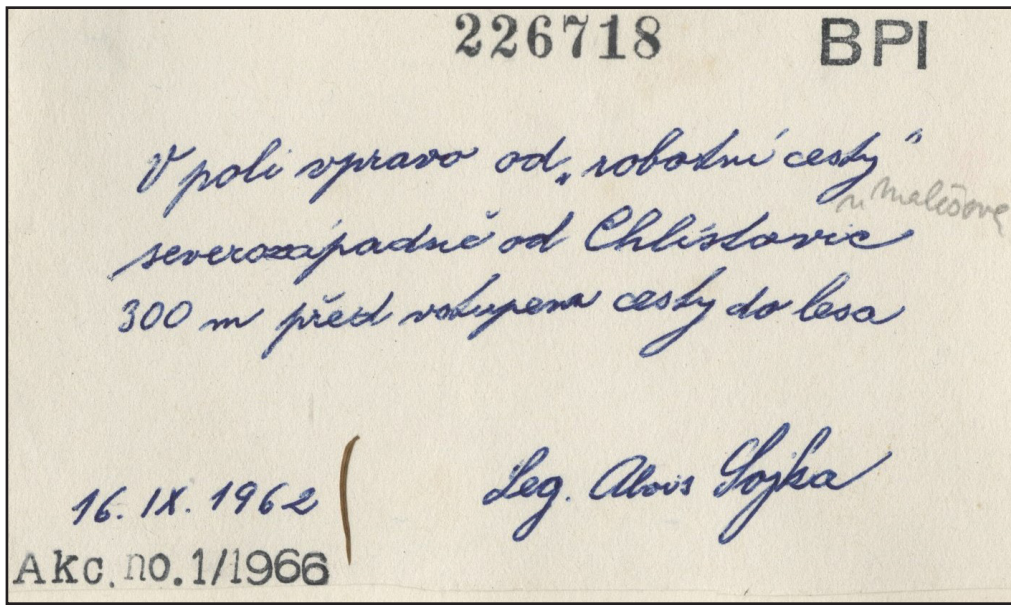 226718 BPI
V poli vpravo od „robotní cesty“
u Malešova
severozápadně od Chlístovic
300 m před vstupem cesty do lesa
16. IX. 1962
Leg. Alois Sojka
Akc. no. 1/1966